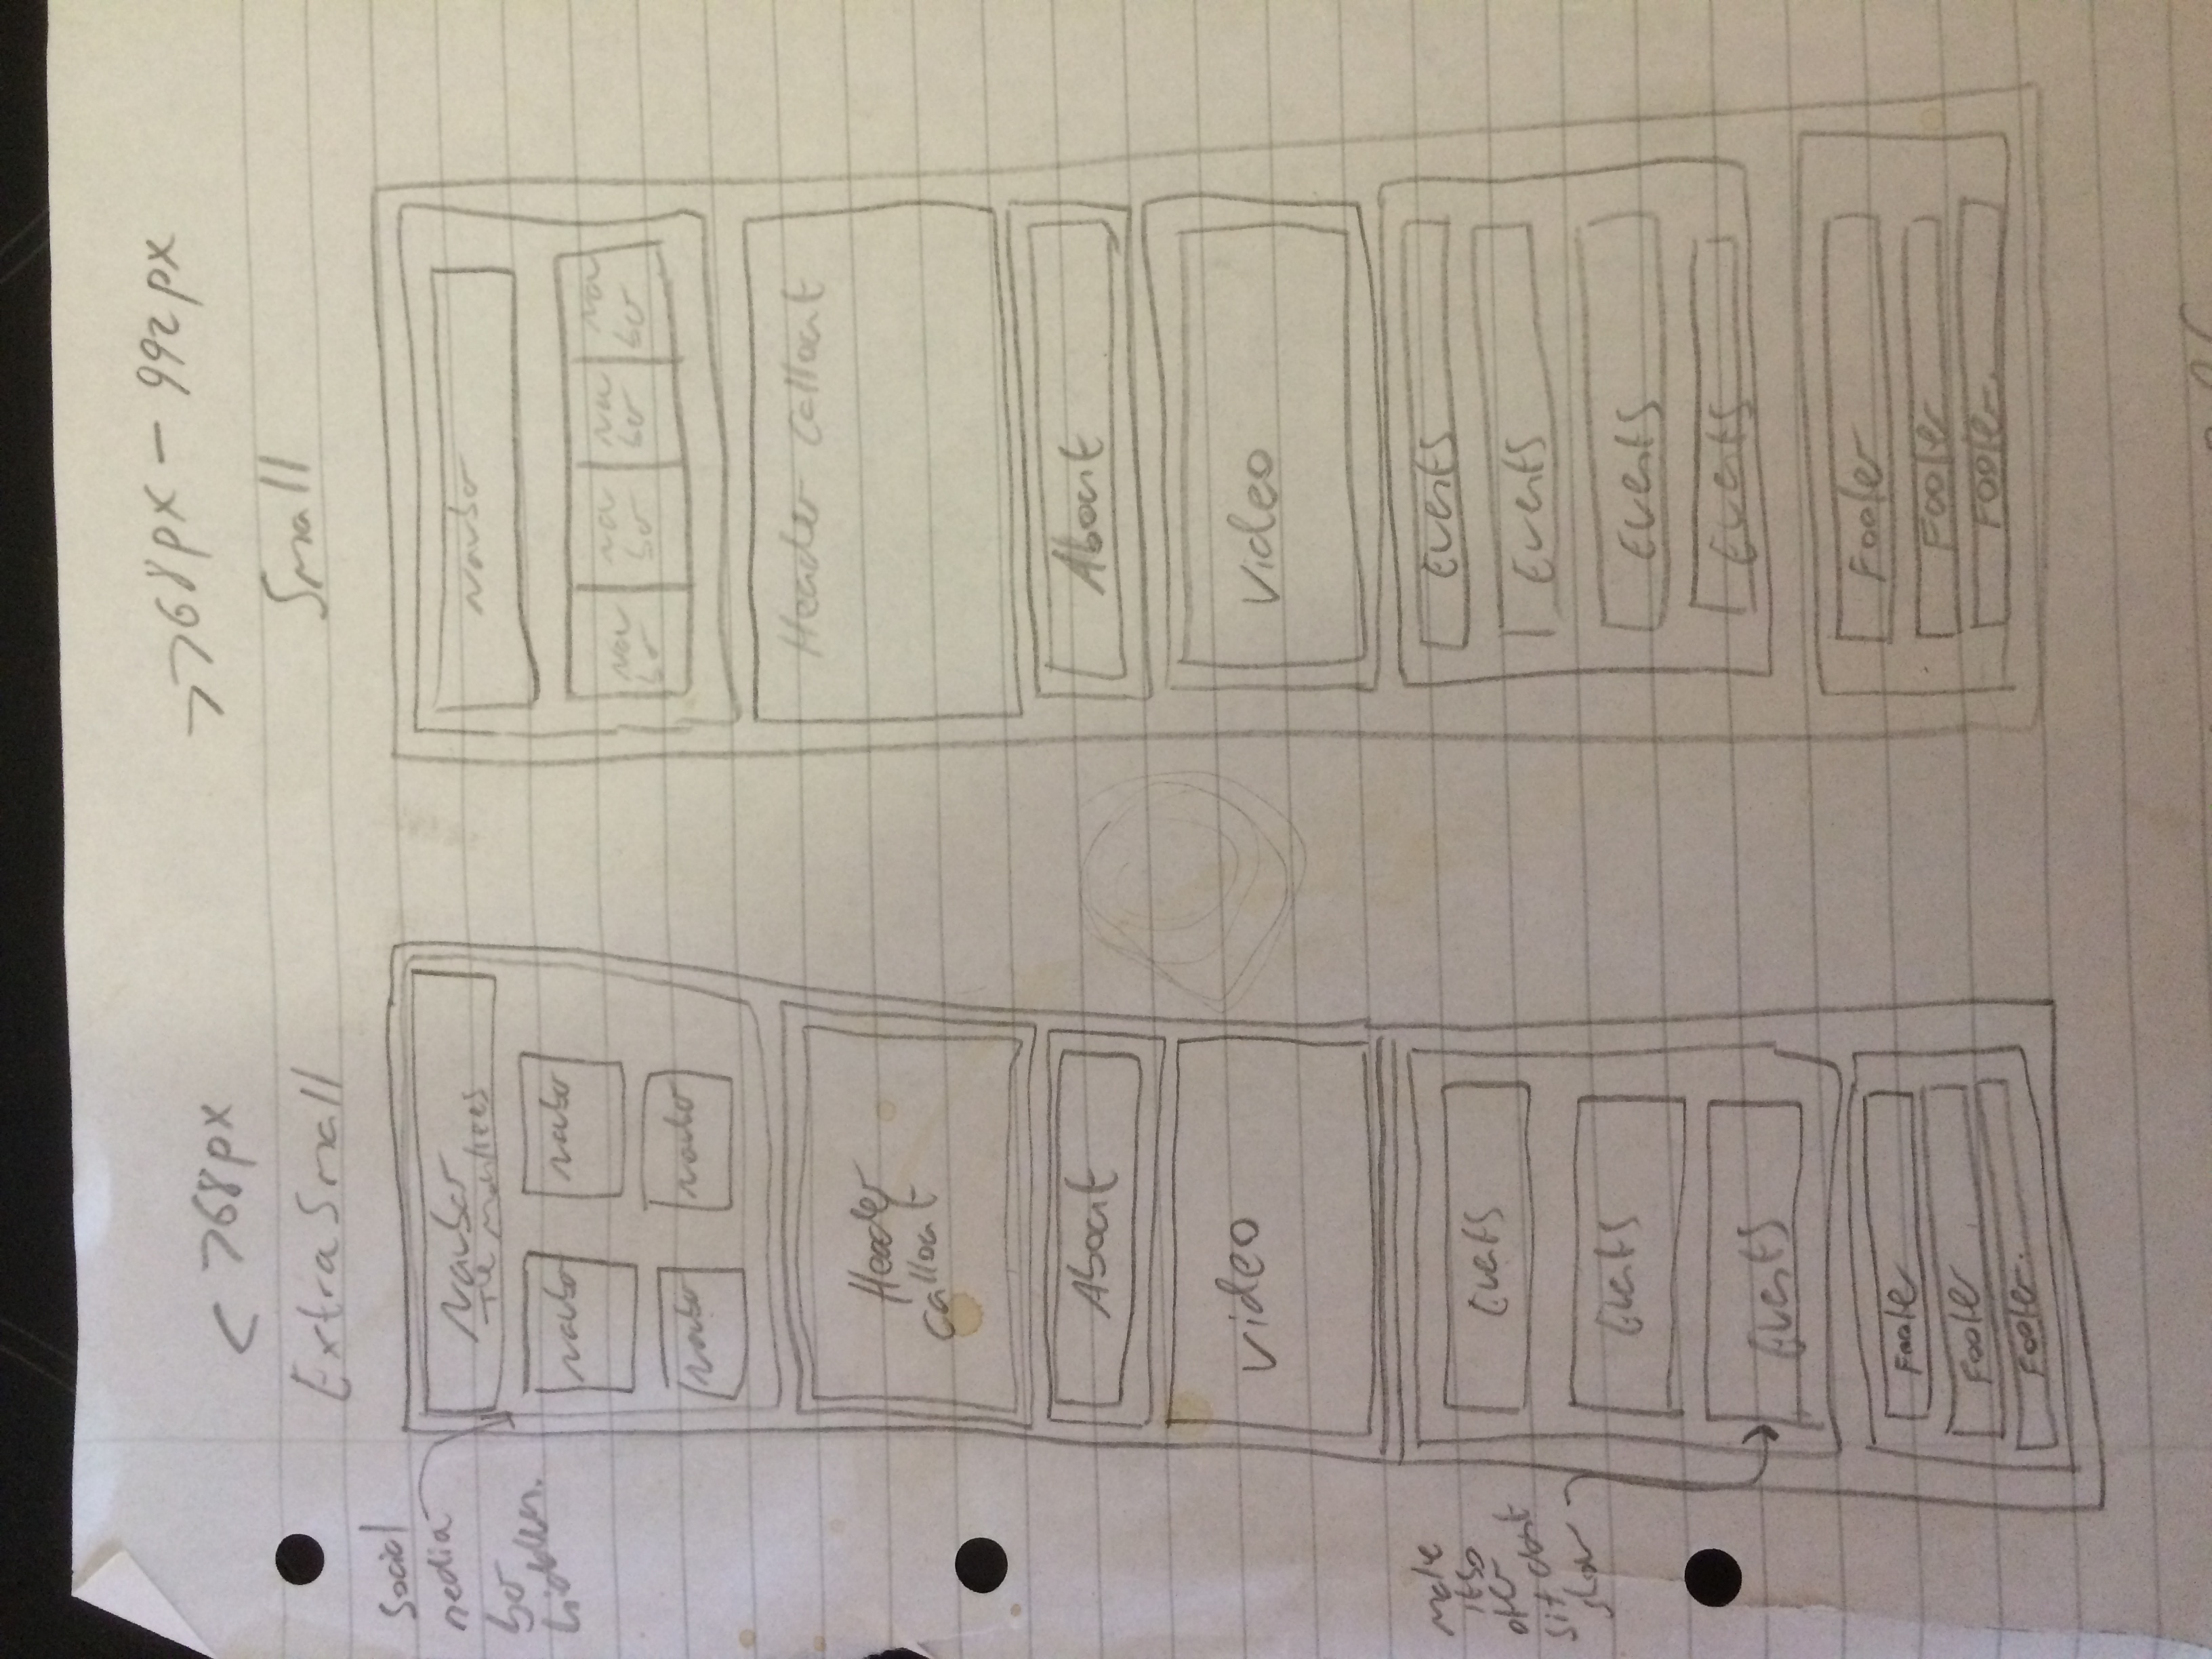 < 768px
Extra Small
Social
media
bar
hidden.
Navbar
Navbar
Navbar
Navbar
Navbar
Header
Callout
About
Video
Events
Events
Events
make
it so
other
dont
show
Footer
Footer
Footer
>768px - 992px
Small
Navbar
nav
bar
nav
bar
nav
bar
nav
bar
Header Callout
About
Video
Events
Events
Events
Events
Footer
Footer
Footer